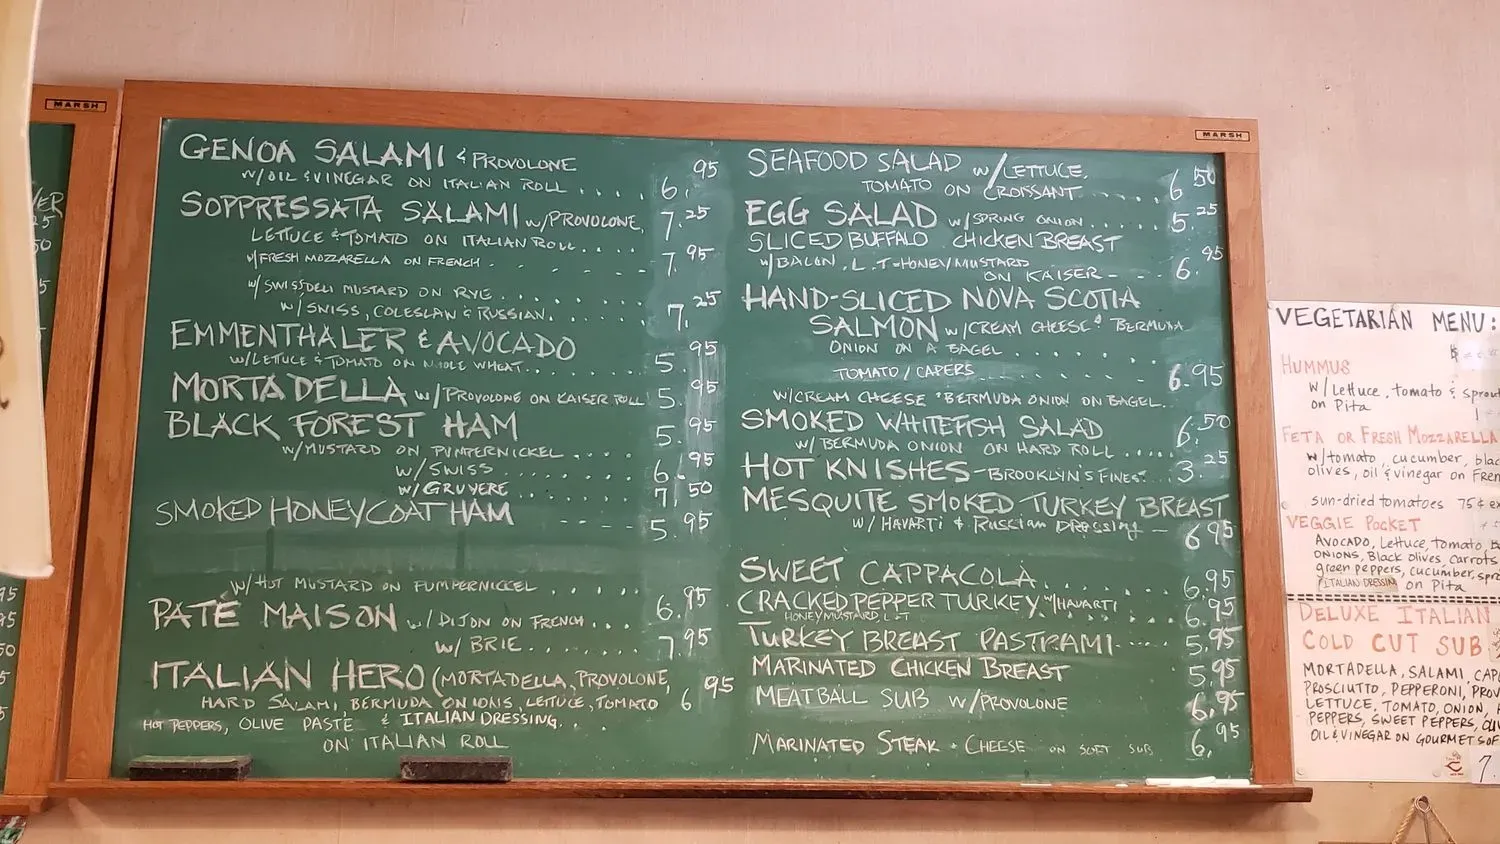 MARSH
MARSH
GENOA SALAMI & PROVOLONE
W/OIL & VINEGAR ON ITALIAN ROLL .... 6.95
SOPPRESSATA SALAMI W/PROVOLONE, 7.25
LETTUCE & TOMATO ON ITALIAN ROLL....
W/FRESH MOZZARELLA ON FRENCH - - - - - 7.95
W/SWISS DELI MUSTARD ON RYE .......
W/SWISS, COLESLAW & RUSSIAN....... 7.25
EMMENTHALER & AVOCADO
W/LETTUCE & TOMATO ON WHOLE WHEAT.... 5.95
MORTADELLA W/PROVOLONE ON KAISER ROLL 5.95
BLACK FOREST HAM 5.95
W/MUSTARD ON PUMPERNICKEL ....
W/SWISS ....... 6.95
W/GRUYERE ....... 7.50
SMOKED HONEYCOAT HAM - - - - 5.95
W/HOT MUSTARD ON PUMPERNICKEL ..... 6.95
PATE MAISON W/DIJON ON FRENCH...
W/ BRIE ..... 7.95
ITALIAN HERO (MORTADELLA, PROVOLONE,
HARD SALAMI, BERMUDA ONIONS, LETTUCE, TOMATO 6.95
HOT PEPPERS, OLIVE PASTE & ITALIAN DRESSING...
ON ITALIAN ROLL
SEAFOOD SALAD W/LETTUCE,
TOMATO ON CROISSANT ..... 6.50
EGG SALAD W/SPRING ONION ..... 5.25
SLICED BUFFALO CHICKEN BREAST
W/BACON, L. T=HONEY/MUSTARD
ON KAISER - - - 6.95
HAND-SLICED NOVA SCOTIA
SALMON W/CREAM CHEESE & BERMUDA
ONION ON A BAGEL ......
TOMATO/CAPERS ....... 6.95
W/CREAM CHEESE & BERMUDA ONION ON BAGEL.
SMOKED WHITEFISH SALAD 6.50
W/BERMUDA ONION ON HARD ROLL .....
HOT KNISHES-BROOKLYN'S FINEST. 3.25
MESQUITE SMOKED TURKEY BREAST
W/ HAVARTI & RUSSIAN DRESSING - 6.95
SWEET CAPPACOLA ...... 6.95
CRACKED PEPPER TURKEY W/HAVARTI 6.95
HONEY MUSTARD, L & T
TURKEY BREAST PASTRAMI .... 5.95
MARINATED CHICKEN BREAST 5.95
MEATBALL SUB W/PROVOLONE 6.95
MARINATED STEAK & CHEESE ON SOFT SUB 6.95
VEGETARIAN MENU:
HUMMUS
W/ Lettuce, tomato & sprout
on Pita
FETA OR FRESH MOZZARELLA
W/tomato, cucumber, blac
olives, oil & vinegar on Fren
sun-dried tomatoes 75¢ ex
VEGGIE POCKET
AVOCADO, Lettuce, tomato,
ONIONS, Black olives, carrots
green peppers, cucumber, spr
ITALIAN DRESSING on Pita
DELUXE ITALIAN
COLD CUT SUB
MORTADELLA, SALAMI, CAP
PROSCIUTTO, PEPPERONI, PROV
LETTUCE, TOMATO, ONION,
PEPPERS, SWEET PEPPERS,
OIL & VINEGAR ON GOURMET SOF
7.